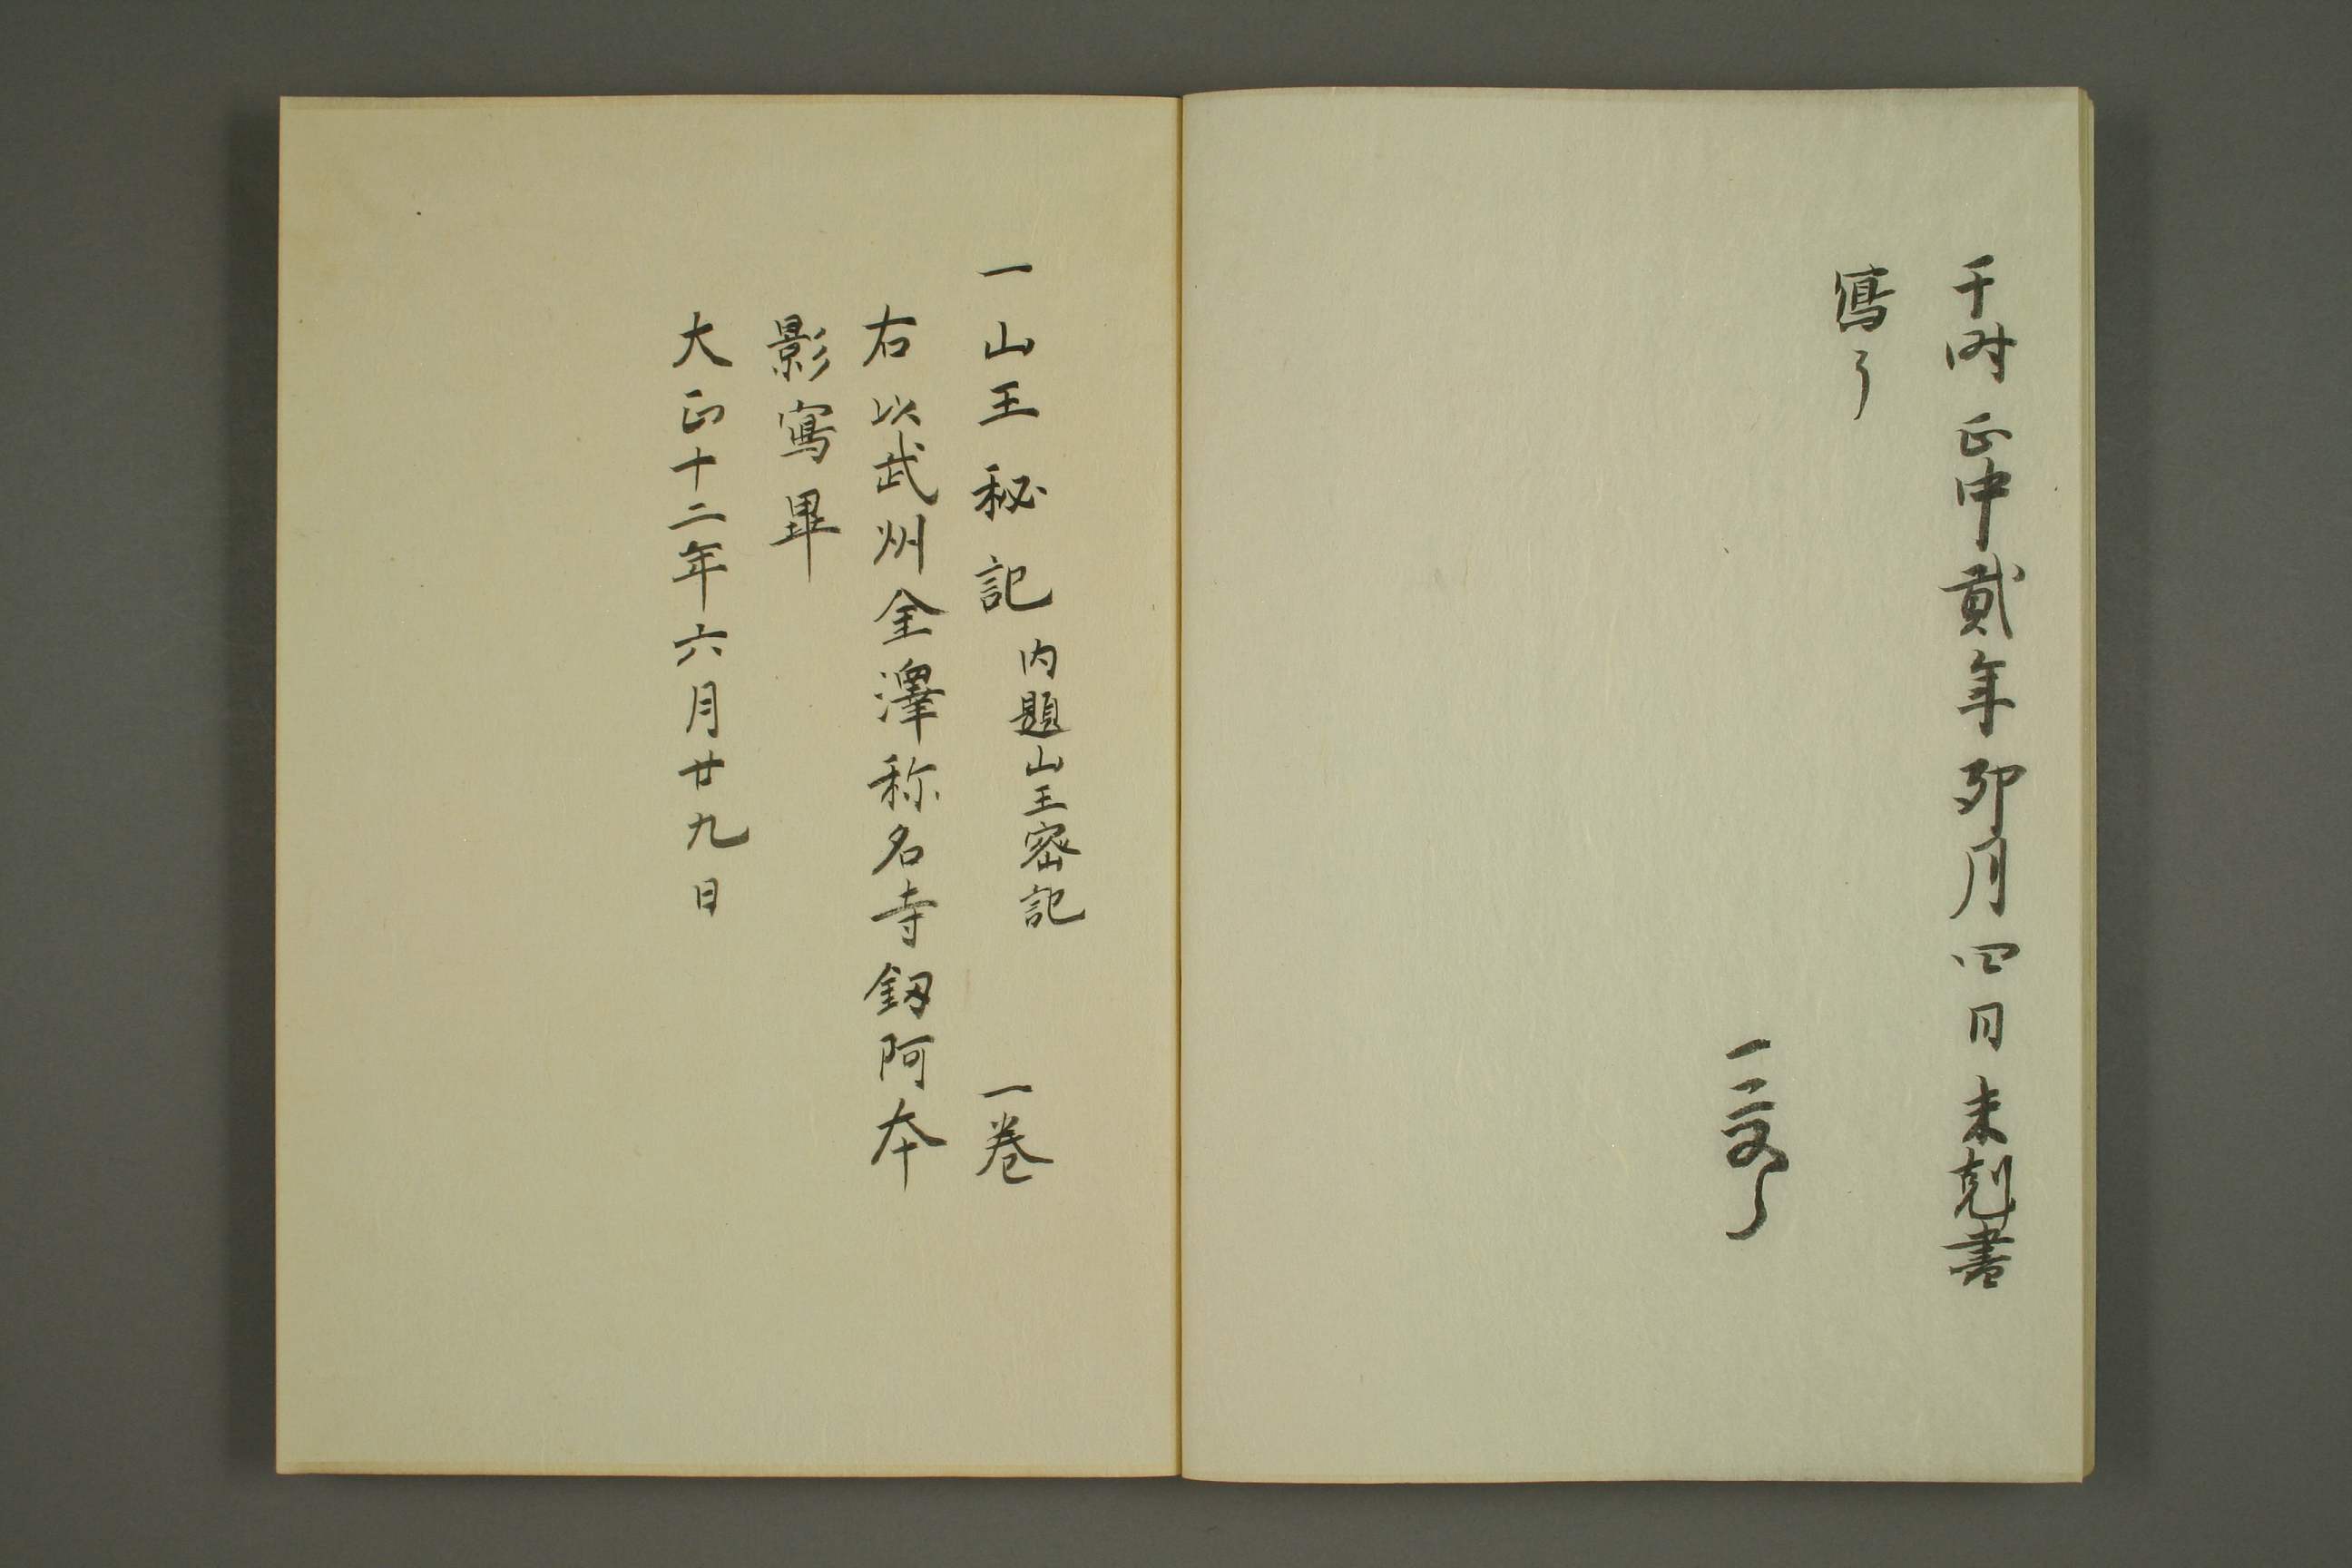 于時正中貳年卯月四日未剋書
寫了
一交了
一山王秘記 内題山王密記 一卷
右以武州金澤称名寺釼阿本
影寫畢
大正十二年六月廿九日